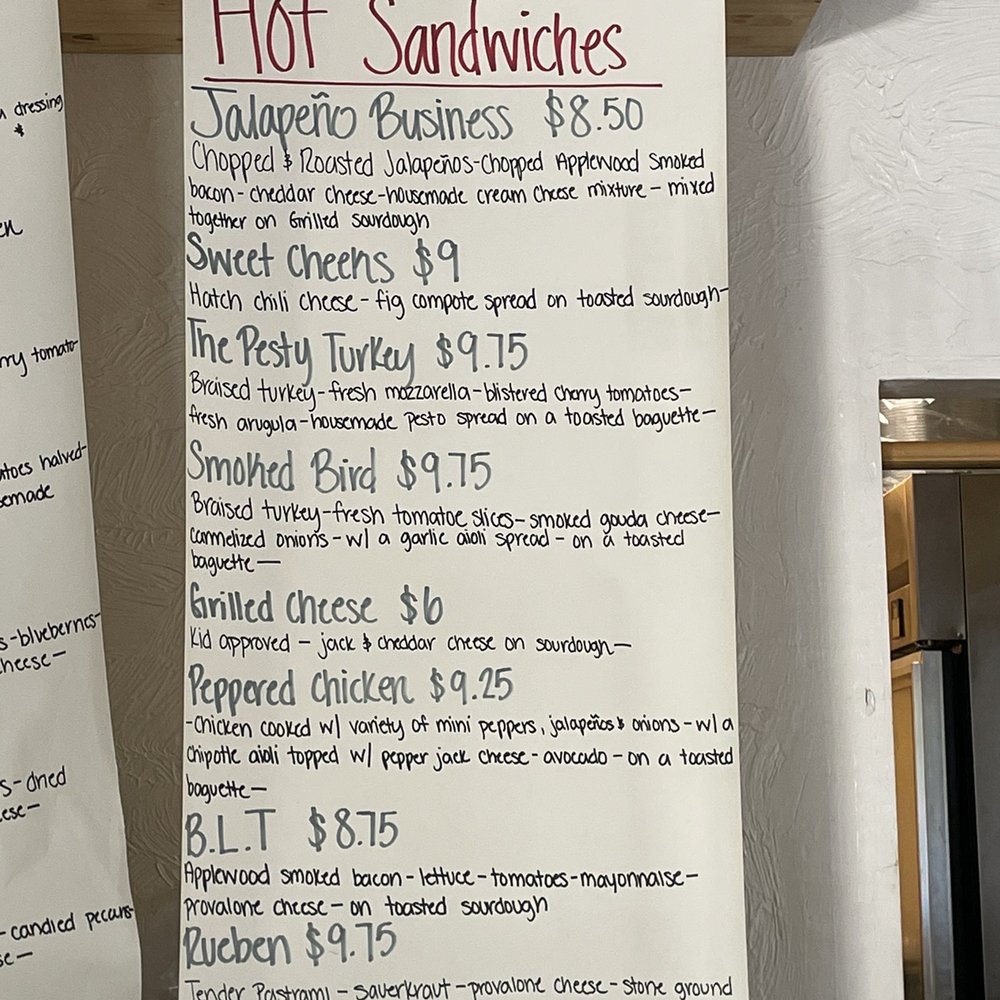 Hot Sandwiches
Jalapeño Business $8.50
Chopped & Roasted Jalapeños-Chopped Applewood Smoked
bacon-cheddar cheese-housemade cream cheese mixture - mixed
together on Grilled sourdough
Sweet Cheeks $9
Hatch chili cheese - fig compote spread on toasted sourdough-
The Pesty Turkey $9.75
Braised turkey-fresh mozzarella-blistered cherry tomatoes-
fresh arugula-housemade pesto spread on a toasted baguette-
Smoked Bird $9.75
Braised turkey-fresh tomatoe slices-smoked gouda cheese-
carmelized onions-w/ a garlic aioli spread - on a toasted
baguette-
Grilled Cheese $6
Kid approved - jack & cheddar cheese on sourdough-
Peppered Chicken $9.25
-Chicken cooked w/ variety of mini peppers, jalapeños & onions-w/ a
chipotle aioli topped w/ pepper jack cheese-avocado-on a toasted
baguette-
B.L.T $8.75
Applewood smoked bacon-lettuce-tomatoes-mayonnaise-
provalone cheese-on toasted sourdough
Rueben $9.75
Tender Pastrami - sauerkraut-provalone cheese-stone ground
dressing
tomato-
halved-
-blueberries-
cheese-
-dried
-candied pecans-